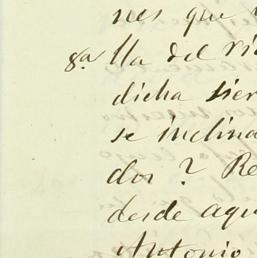 nes que
8ª lla del rio
dicha sier
se inclina
dos? Re
desde aqu
Antonio